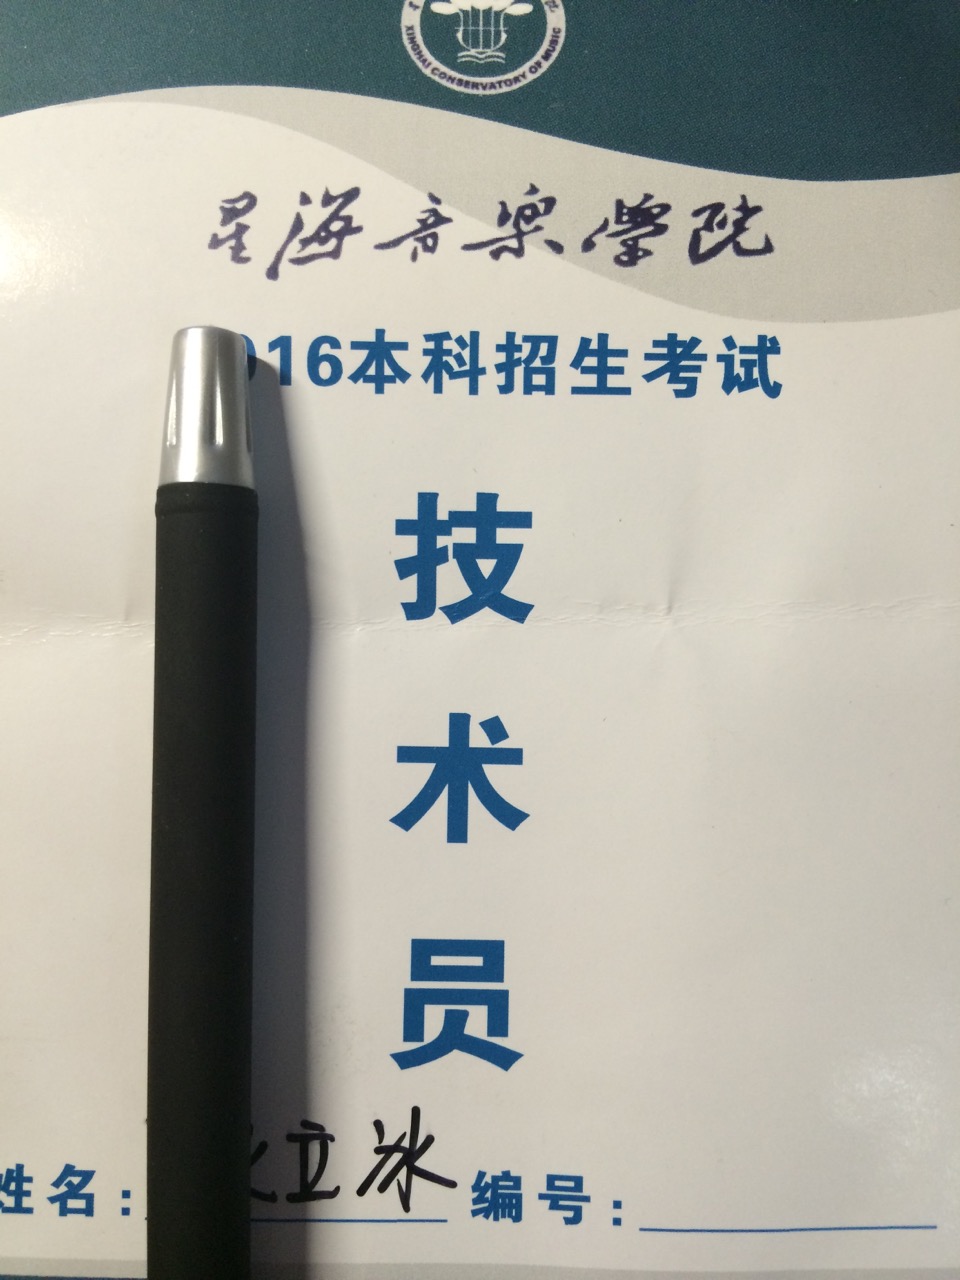 XINGHAI CONSERVATORY OF MUSIC
星海音樂學院
016本科招生考试
技
术
员
姓名: 立冰 编号: